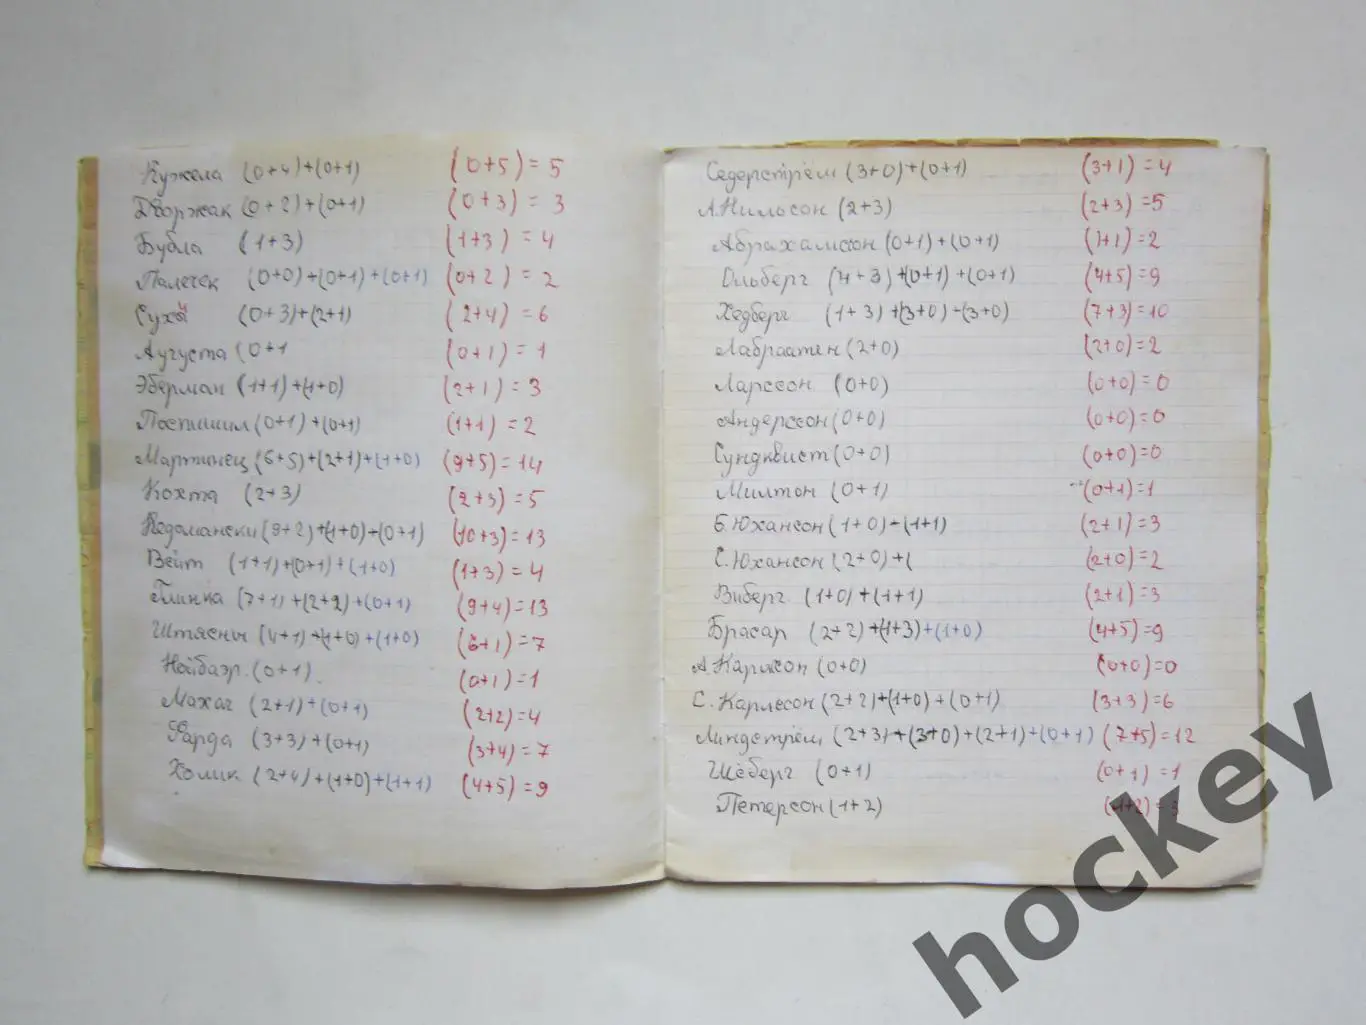 Кужела (0+4)+(0+1) (0+5)=5
Дворжак (0+2)+(0+1) (0+3)=3
Бубла (1+3) (1+3)=4
Палечек (0+0)+(0+1)+(0+1) (0+2)=2
Сухы (0+3)+(2+1) (2+4)=6
Аугуста (0+1 (0+1)=1
Эберман (1+1)+(1+0) (2+1)=3
Поспишил (0+1)+(0+1) (1+1)=2
Мартинец (6+5)+(2+1)+(1+0) (9+5)=14
Кохта (2+3) (2+3)=5
Недомански (9+2)+(1+0)+(0+1) (10+3)=13
Вейт (1+1)+(0+1)+(1+0) (1+3)=4
Глинка (7+1)+(2+2)+(0+1) (9+4)=13
Штясны (4+1)+(1+0)+(1+0) (6+1)=7
Нойбаэр. (0+1) (0+1)=1
Махач (2+1)+(0+1) (2+2)=4
Фарда (3+3)+(0+1) (3+4)=7
Холик (2+4)+(1+0)+(1+1) (4+5)=9
Седерстрём (3+0)+(0+1) (3+1)=4
А.Нильсон (2+3) (2+3)=5
Абрахамссон (0+1)+(0+1) (1+1)=2
Ольберг (4+3)+(0+1)+(0+1) (4+5)=9
Хедберг (1+3)+(3+0)+(3+0) (7+3)=10
Лабраатен (2+0) (2+0)=2
Ларссон (0+0) (0+0)=0
Андерссон (0+0) (0+0)=0
Сундквист (0+0) (0+0)=0
Милтон (0+1) (0+1)=1
Б.Юхансон (1+0)+(1+1) (2+1)=3
С.Юхансон (2+0)+( (2+0)=2
Виберг (1+0)+(1+1) (2+1)=3
Брасар (2+2)+(1+3)+(1+0) (4+5)=9
А.Карлсон (0+0) (0+0)=0
С.Карлссон (2+2)+(1+0)+(0+1) (3+3)=6
Линдстрём (2+3)+(3+0)+(2+1)+(0+1) (7+5)=12
Шёберг (0+1) (0+1)=1
Петерсон (1+2) (1+2)=3
hockey